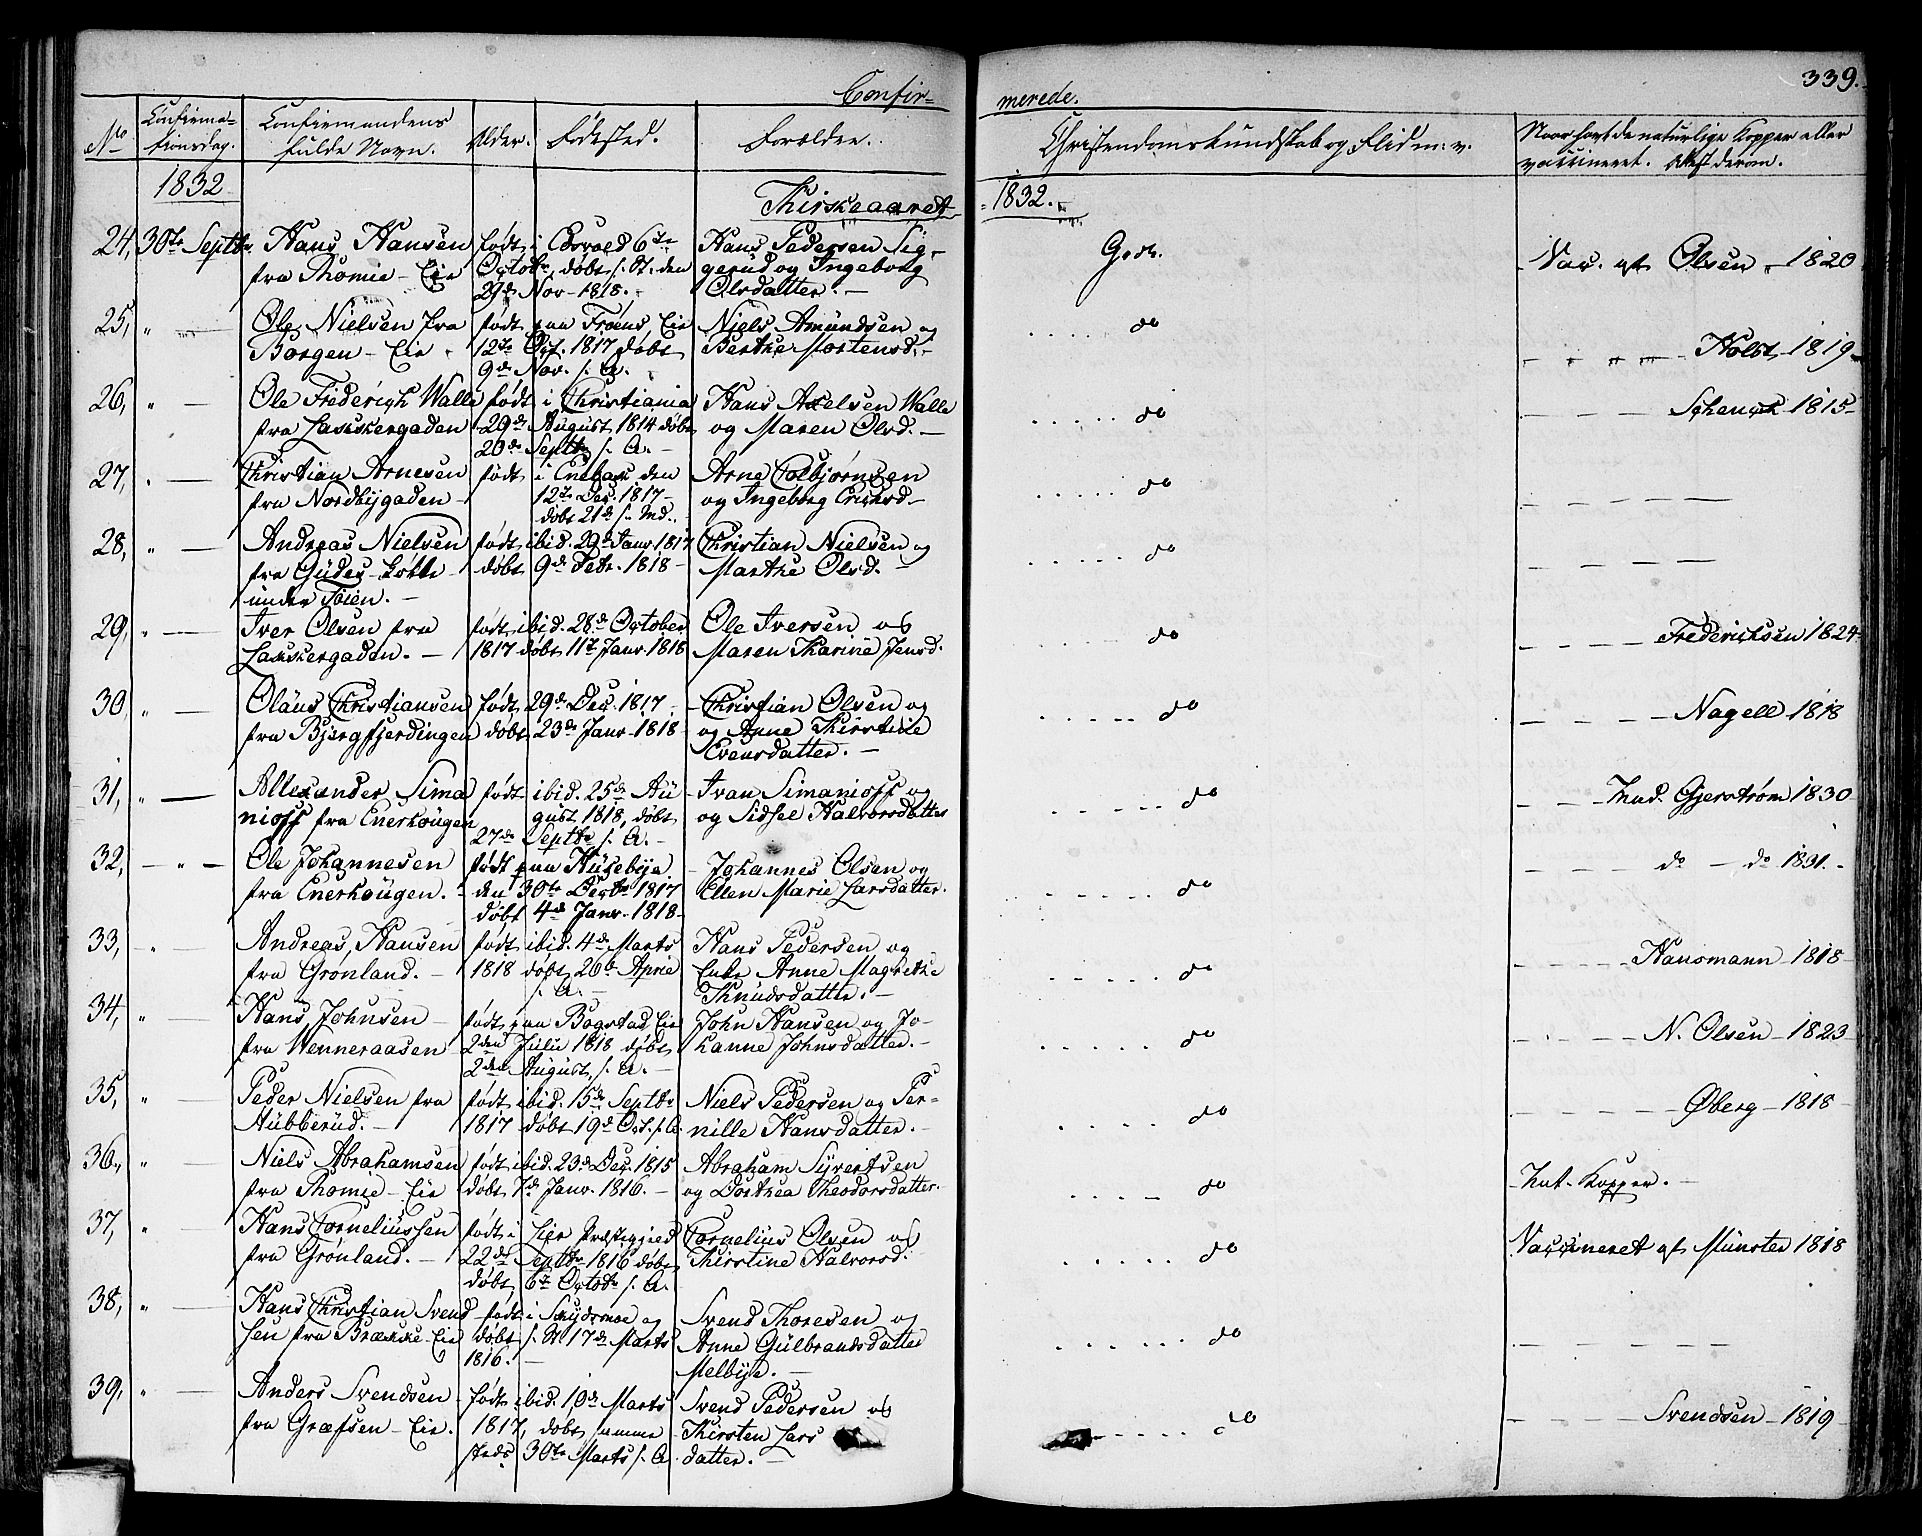 339.
Confir-
merede.
No
Confirma-
tionsdag.
Confirmandens
fulde Navn.
Alder.
Fødested.
Forældre.
Christendomskundskab og Flid m: v.
Naar havt de naturlige Kopper eller
vaccineret. Attest derom.
1832
Kirkeaaret
1832.
24, 30te Septbr Hans Hansen født i Edsvold 6te Hans Pedersen Sig-
fra Thomie - Eie Octob., døbt s. St. den gerud og Ingeborg
29de Nov - 1818. - Olsdatter. -
Godt.
Vac. af Olsen - 1820
25, " — Ole Nielsen fra født paa Frøens Eie Niels Amundsen og
Borgen - Eie 12te Oct. 1817 døbt Berthe Mortensd. -
9de Nov. s. A.
do
Holst 1819
26, " — Ole Friderich Walle født i Christiania Hans Axelsen Walle
fra Lakkergaden 29de August 1814 døbt og Maren Olsd. -
20de Septbr s. A. -
do
Schenck 1815
27, " — Christian Arnesen født i Enebak den Arne Colbjørnsen
fra Nordbygaden - 12te Dec. 1817 - og Ingeborg Ericksd -
døbt 21de s. Md.
do
28, " — Andreas Nielsen født ibid. 29de Janr 1817 Christian Nielsen og
fra Gudes - Løkke døbt 9de Febr. 1818 - Marthe Olsd. -
under Tøien. -
do
29, " — Iver Olsen fra født ibid. 28de October Ole Iversen og
Lakkergaden. - 1817 døbt 11te Janr 1818 Maren Karine Jensd.
do
Frederichsen 1824
30 " — Olaus Christiansen født 29de Dec. 1817 - Christian Olsen og
fra Bjergfjerdingen døbt 23de Janr 1818 og Anne Kirstine
Evensdatter. -
do
Nagell 1818
31, " — Allexander Sima født ibid. 25de Au Ivan Simanioff og
nioff fra Enerhougen gust 1818, døbt og Sidsel Halvorsdatter
27de Septbr s. A. -
do
Mad. Gjerstrøm 1830
32, — " — Ole Johannesen født paa Husebye Johannes Olsen og
fra Enerhougen. - den 30te Decbr 1817 Ellen Marie Larsdatter.
døbt 4de Janr. 1818
do
do - do 1831. -
33, " — Andreas Hansen født ibid. 4de Marts Hans Pedersen og
fra Grønland. - 1818 døbt 26de April Enke Anne Magrethe
s. A. - Knudsdatter. -
do
Hausmann 1818
34, " — Hans Johnsen født paa Bogstad Eie John Hansen og Jo-
fra Wenneraasen 2den Julii 1818 døbt hanne Johnsdatter. -
2den August s. A. -
do
N. Olsen - 1823
35, " — Peder Nielsen fra født ibid. 15de Septbr Niels Pedersen og Per-
Hubberud. - 1817 døbt 19de Oct. s. A. nille Hansdatter. -
do
Øberg - 1818
36, " — Niels Abrahamsen født ibid. 23de Dec. 1815 Abraham Syvertsen
fra Thomie - Eie døbt 7de Janr 1816. - og Dorthea Theodorsdatter.
do
Nat. Kopper. -
37, " — Hans Corneliussen født i Lier Præstegjeld Cornelius Olsen og
fra Grønland. - 22de Septbr 1816 døbt Kirstine Halvorsd.
døbt 6te Octobr s. A.
do
Vaccineret af Münster 1818
38, " — Hans Christian Svend født i Skydsmoe og Svend Thoresen og
sen fra Brække-Eie døbt s. St 17de Marts Anne Gulbrandsdatter
1816. - Melbye. -
do
39, " — Anders Svendsen født ibid. 10de Marts Svend Pedersen og
fra Græfsen - Eie. 1817, døbt samme Kirsten Lars
steds 30te Marts s. A. datter. -
do
Svendsen - 1819